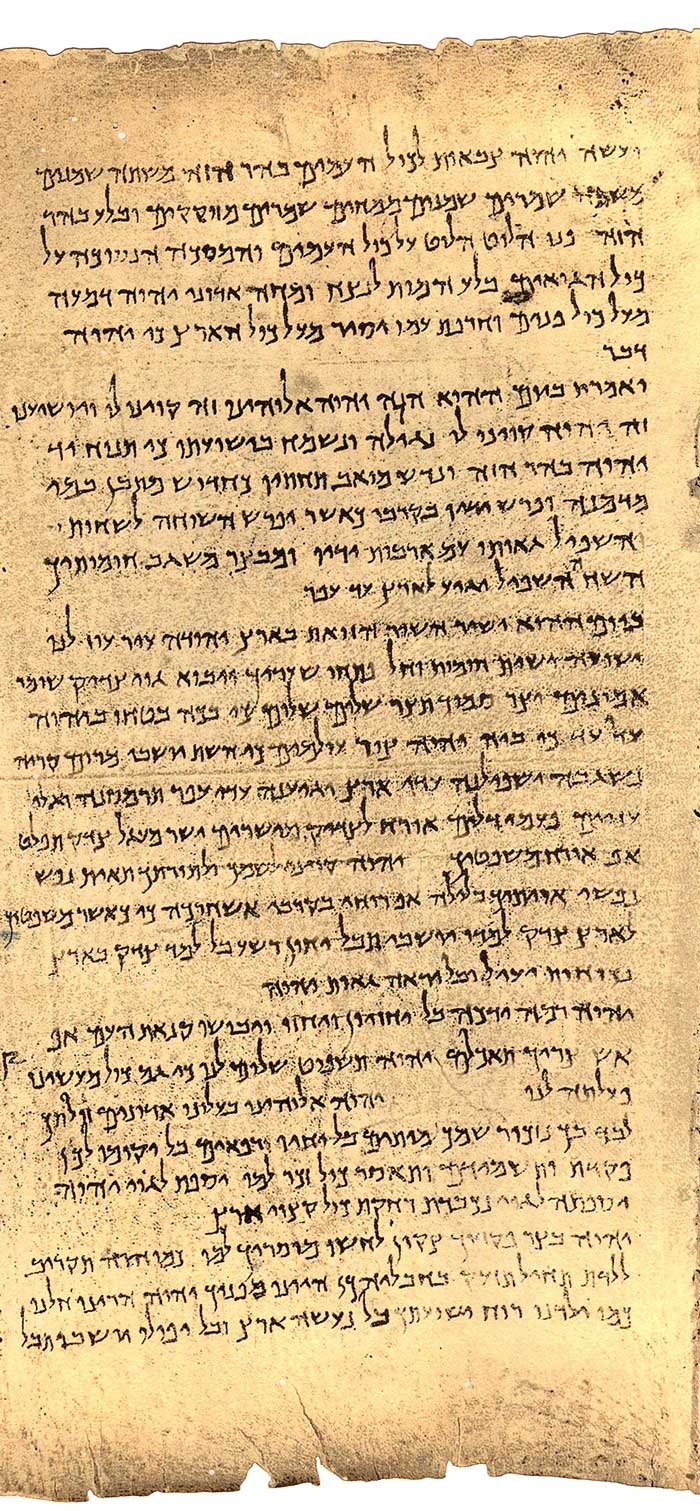 ועשה יהוה צבאות לכול העמים בהר הזה משתה שמנים
משתה שמרים שמנים ממחים שמרים מזוקקים ובלע בהר
הזה פני הלוט הלוט על כול העמים והמסכה הנסוכה על
כול הגואים בלע המות לנצח ומחה אדוני יהוה דמעה
מעל כול פנים וחרפת עמו יסיר מעל כול הארץ כי יהוה
דבר
ואמרת ביום ההיא הנה יהוה אלוהינו זה קוינו לו ויושיענו
זה יהוה קוינו לו נגילה ונשמח בישועתו כי תנוח יד
יהוה בהר הזה ונדש מואב תחתיו כחדוש מתבן במי
מדמנה ופרש ידיו בקרבו כאשר יפרש השוחה לשחות
והשפיל גאותו עם ארבות ידיו ומבצר משגב חומותיך
השח השפיל יגיע לארץ עד עפר
ביום ההיא ישיר השיר הזואת בארץ יהודה עיר עוז לנו
ישועה ישית חומות וחל פתחו שעריך ויבוא גוי צדיק שומר
אמונים יצר סמוך תצר שלום שלום כי בכה בטחו ביהוה
עדי עד כי ביה יהוה צור עולמים כי השח יושבי מרום קריה
נשגבה ישפילנה עדי ארץ יגיענה עדי עפר תרמסנה רגלי
עניים פעמי דלים אורח לצדיק מישרים ישר מעגל צדק תפלט
אף אורח משפטיך יהוה קוינו לשמך ולתורתך תאות נפש
נפשי אויתיך בלילה אף רוחי בקרבי אשחרכה כי כאשר משפטיך
לארץ צדק למדו יושבי תבל יחון רשע בל למד צדק בארץ
נכוחות יעול ובל יראה גאות יהוה
יהוה רמה ידכה בל יחזיון ויחזו ויבושו קנאת העם אף
אש צריך תאכלם יהוה תשפוט שלום לנו כי גם כול מעשינו
פעלתה לנו יהוה אלוהינו בעלונו אדונים זולתך
לבד בך נזכיר שמך מיתים בל יחיו ורפאים בל יקומו לכן
פקדת ותשמידם ותאסר כול זכר למו יספת לגוי יהוה
יספתה לגוי נכבדת רחקת כול קצוי ארץ
יהוה בצר פקודיך צקון לחש מוסריך למו כמו הרה תקריב
ללדת תחיל תזעק בחבליה כן היינו מפניך יהוה הרינו חלנו
כמו ילדנו רוח ישועתך בל נעשה ארץ ובל יפולו יושבי תבל